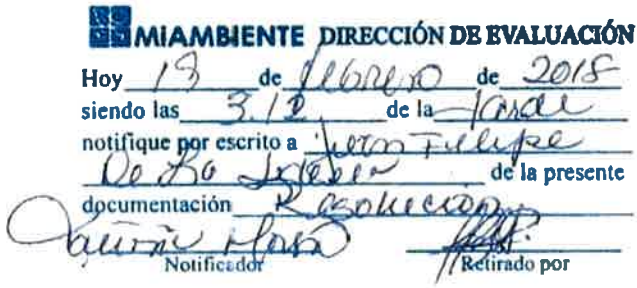 MIAMBIENTE DIRECCIÓN DE EVALUACIÓN
Hoy 19 de febrero de 2018
siendo las 3:12 de la tarde
notifique por escrito a Juan Felipe
De La Iglesia de la presente
documentación Resolución
Notificador Retirado por